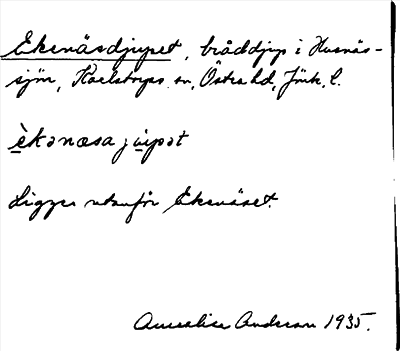 Ekenäsdjupet, bråddjup i Husnäs-
sjön, Karlstorps sn, Östra hd, Jönk. l.
èkənæsa jʉ̀pət
Ligger utanför Ekenäset.
Annalisa Anderson 1935.